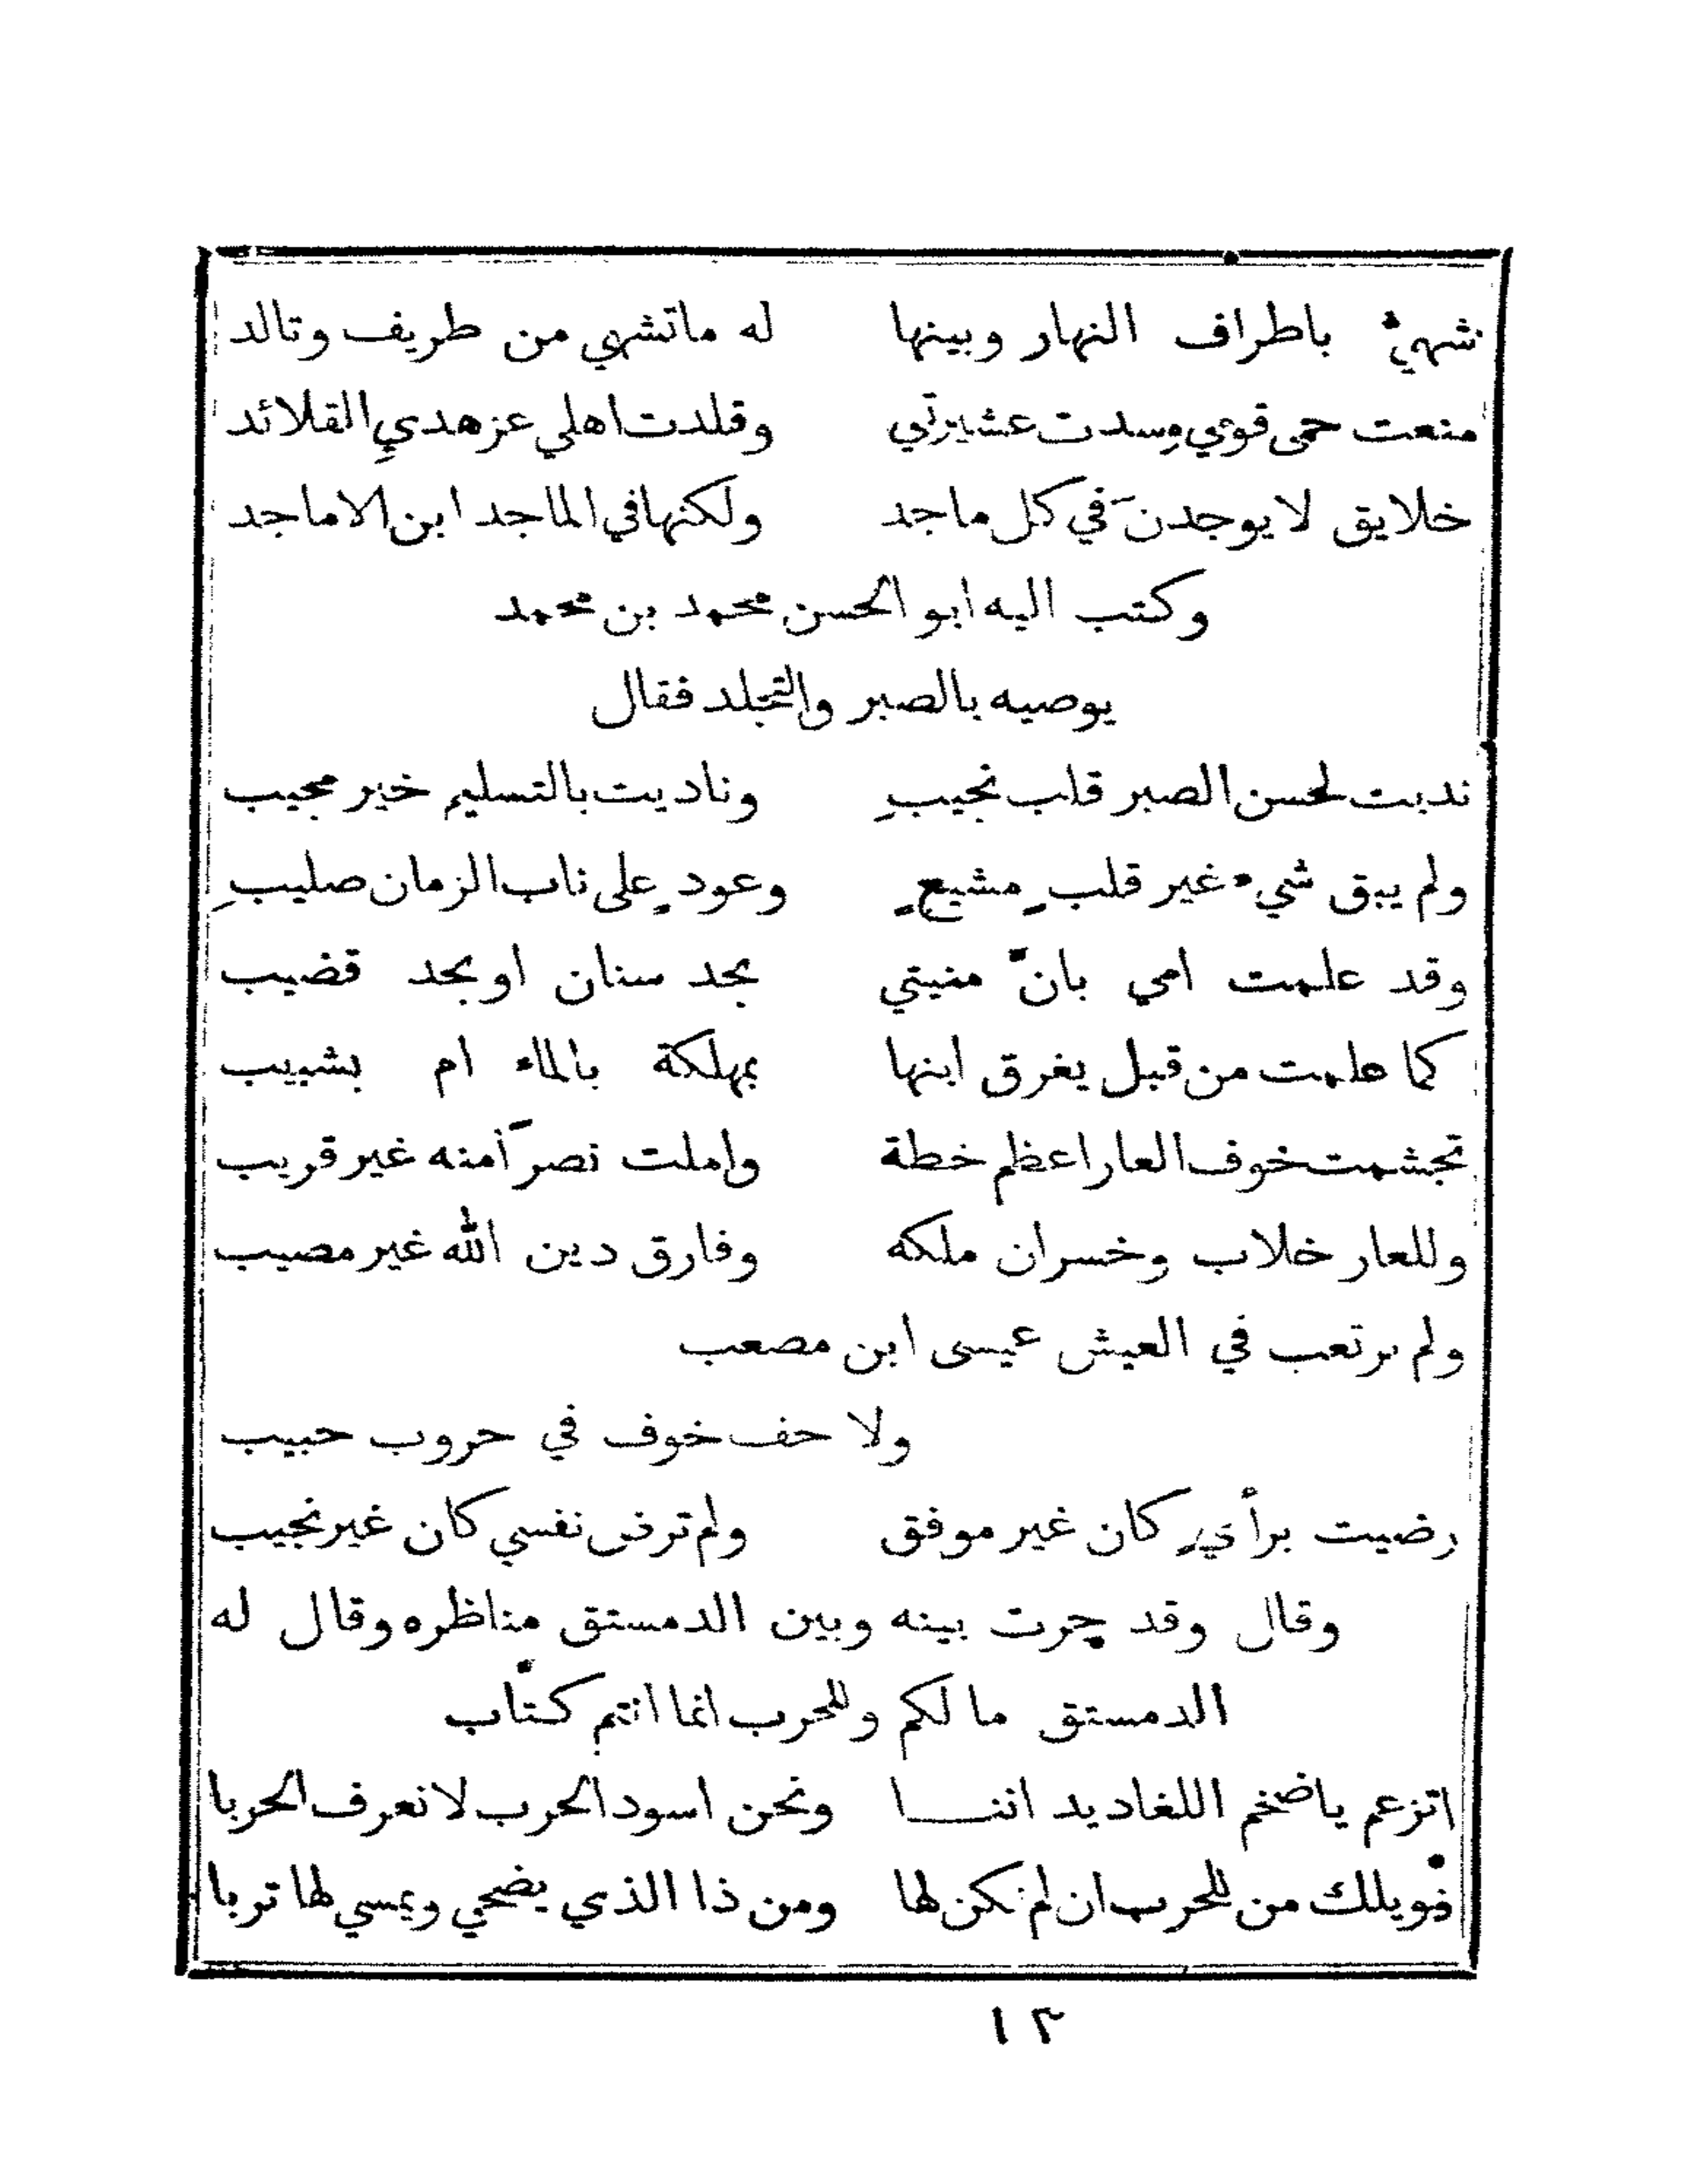 شهيٌّ باطراف النهار وبينها له ماتشهي من طريف وتالد
منعت حمى قومي وسدت عشيرتي وقلدت اهلي عز هدي القلائد
خلايق لا يوجدنَ في كل ماجد ولكنها في الماجد ابن الاماجد
وكتب اليه ابو الحسن محمد بن محمد
يوصيه بالصبر والتجلد فقال
ندبت لحسن الصبر قلب نجيبِ وناديت بالتسليم خير مجيب
ولم يبق شيء غير قلبٍ مشيعٍ وعودٍ على ناب الزمان صليبِ
وقد علمت امي بانّ منيتي بحد سنان او بحد قضيب
كما علمت من قبل يغرق ابنها بمهلكة بالماء ام بشبيب
تجشمت خوف العار اعظم خطة واملت نصرَ آمنه غير قريب
وللعار خلاب وخسران ملكه وفارق دين الله غير مصيب
ولم يرتعب في العيش عيسى ابن مصعب
ولا حف خوف في حروب حبيب
رضيت برأيٍ كان غير موفق ولم ترض نفسي كان غير نجيب
وقال وقد جرت بينه وبين الدمستق مناظره وقال له
الدمستق ما لكم وللحرب انما انتم كتّاب
اتزعم ياضخم اللغاديد اننـــا ونحن اسود الحرب لا نعرف الحربا
فويلك من للحرب ان لم نكن لها ومن ذا الذي يضحي ويمسي لها تربا
١٣